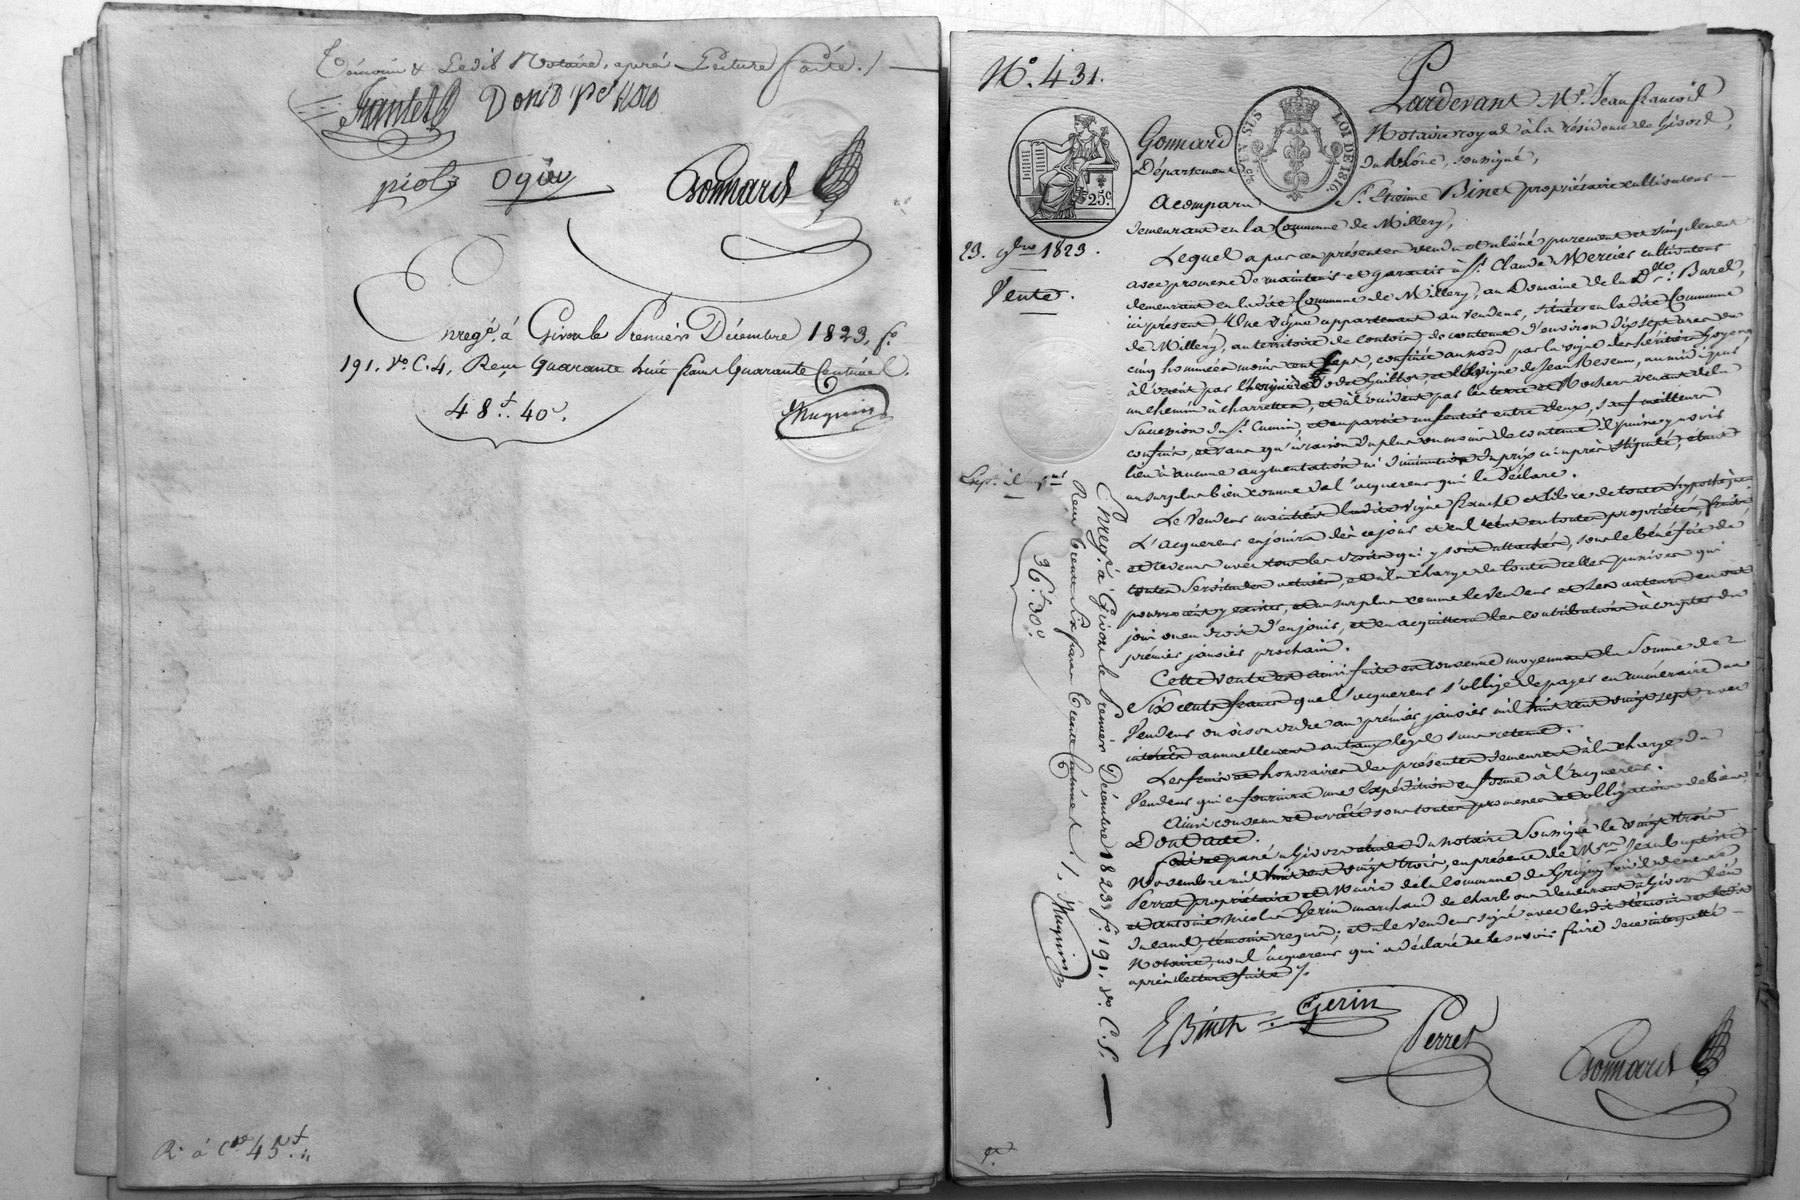 Témoins & Ledit Notaire, après Lecture faite. /
piot Ogier Gonnard
Enreg.é à Givors le Premier Décembre 1823, f.o
191. v.o C. 4, Reçu Quarante huit francs Quarante Centimes.
48.f 40.c
R. à 45.f
N.o 431.
Pardevant M.e Jean françois
Gonnard Notaire royal à la résidence de Givors,
Département du Rhône, soussigné,
CENSUS LOI DE 1816.
25.c
A comparu S.r Etienne Binet propriétaire cultivateur
demeurant en la Commune de Millery,
23. 9bre 1823.
Vente.
Lequel a par ces présentes vendu et aliéné purement et simplement
avec promesse de maintenir et garantir à S.r Claude Mercier cultivateur
demeurant en la dite Commune de Millery, au Domaine de la D.lle Burel,
ici présent, Une vigne appartenant au vendeur, située en la dite Commune
de Millery, au territoire de de contenue d'environ dix sept ares ou
cinq hommées moins confinée au nord par la vigne des héritiers
à l'orient par et la vigne de Jean au midi par
un chemin à charrettes, et à l'occident par les terre et Rochers venant de la
Succession du S.r Cumin, et en partie un sentier entre deux, sauf meilleurs
confins, et sans qu'à raison du plus ou moins de contenue il puisse y avoir
lieu à aucune augmentation ni diminution du prix ci après stipulé, étant
au surplus bien connue de l'acquereur qui le déclare.
Le Vendeur maintient la dite vigne franche et libre de toutes hypothèques
L'acquereur en jouira dès ce jour et en toutes propriétés, fruits,
et revenus avec tous les droits qui y sont attachés, sous le bénéfice de
toutes servitudes actives, et à la charge de toutes celles passives qui
pourroient y exister, et au surplus comme le vendeur et ses auteurs en ont
joui ou eu droit d'en jouir, et en acquittera les contributions à compter du
premier janvier prochain.
Cette vente est ainsi faite et consentie moyennant la Somme de
Six cents francs que l'acquereur s'oblige de payer en numéraire au
Vendeur ou à son ordre au premier janvier mil huit cent vingt sept avec
intérêts annuellement au taux légal sans retenue.
Les frais et honoraires des présentes demeurent à la charge du
Vendeur qui en fournira une Expédition en forme à l'acquereur.
Ainsi convenu et arrêté sous toutes promesses et obligations de biens
Dont acte.
Fait et passé à Givors étude du Notaire Soussigné le vingt trois
Novembre mil huit cent vingt trois, en présence de M.rs Jean baptiste
Perret propriétaire et Maire de la Commune de Grigny où il demeure
et antoine nicolas Gerin marchand de charbons demeurant à Givors lieu
du canal, témoins requis; et a le vendeur signé avec les dits témoins et ledit
Notaire, non l'acquereur qui a déclaré ne le savoir faire de ce interpellé
après lecture faite /.
Enreg.é à Givors le Premier Décembre 1823, f.o 191, v.o C. 5.
Reçu trente Six francs trente Centimes. /.
36.f 30.c
EBineh = Gerin
Perret
Gonnard